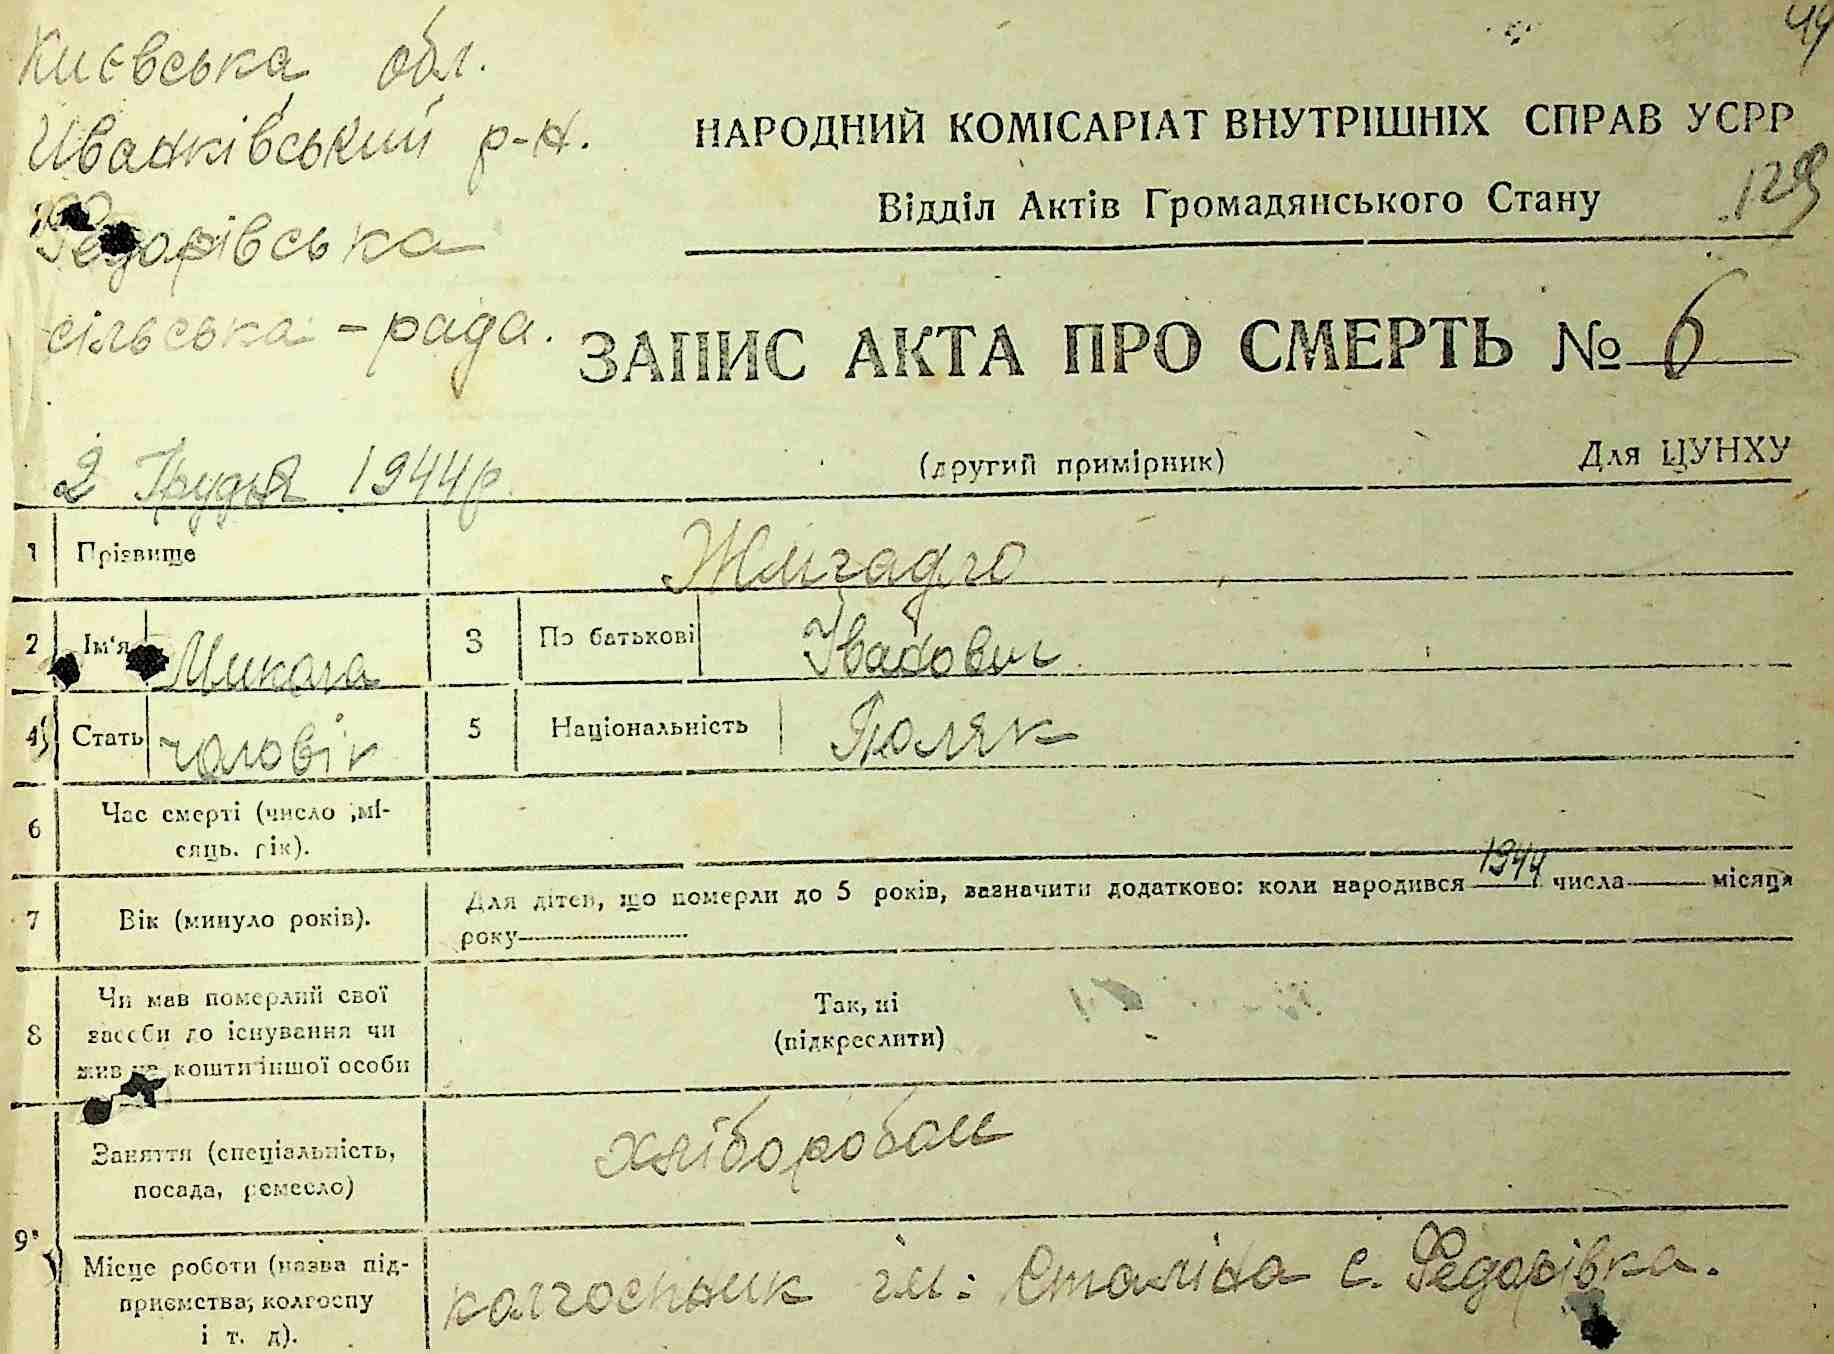 44
Києвська обл.
Иванківський р-н.
НАРОДНИЙ КОМІСАРІАТ ВНУТРІШНІХ СПРАВ УСРР
Відділ Актів Громадянського Стану
129
Федорівська
сільська - рада.
ЗАПИС АКТА ПРО СМЕРТЬ № 6
2 Грудня 1944р.
(другий примірник)
Для ЦУНХУ
1 Прізвище Жигадло
2 Ім'я Микола 3 По батькові Іванович
4 Стать чоловік 5 Національність Поляк
6 Час смерті (число ,мі-
сяць. рік).
7 Вік (минуло років). Для дітей, що померли до 5 років, зазначити додатково: коли народився 1944 числа місяця
року
8 Чи мав померлий свої
засоби до існування чи
жив на кошти іншої особи
Так, ні
(підкреслити)
9 Заняття (спеціальність,
посада, ремесло)
хлібороб
Місце роботи (назва під-
приємства, колгоспу
і т. д).
колгоспник ім: Сталіна с. Федорівка.